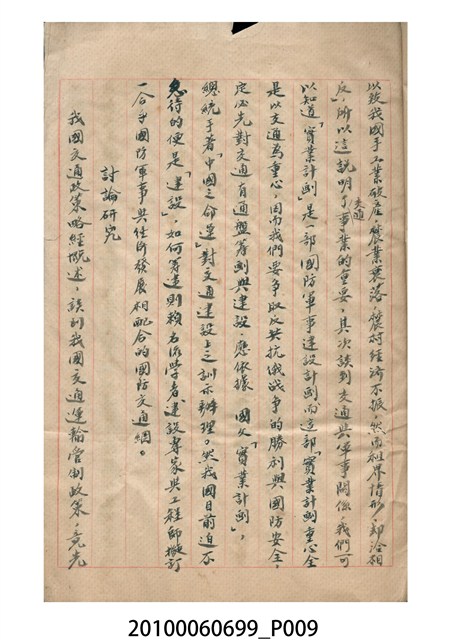 以致我國手工業破產，農業衰落，農村經濟不振，然而租界情形，卻洽相
反，所以這說明了交通事業的重要，其次談到交通與軍事關係，我們可
以知道「實業計劃」是一部國防軍事建設計劃而這部「實業計劃重心全
是以交通為重心，因而我們要爭取反共抗俄戰爭的勝利與國防安全，
定必先對交通有通盤籌劃與建設，應依據 國父「實業計劃」，
總統手著「中國之命運」對交通建設上之訓示辦理。然我國目前迫不
急待的便是「建設」，如何籌進則賴各位學者建設專家與工程師擬訂
一合乎國防軍事與經濟發展相配合的國防交通網。
討論研究
我國交通政策略經概述，談到我國交通運輸管制政策，竟先
20100060699_P009